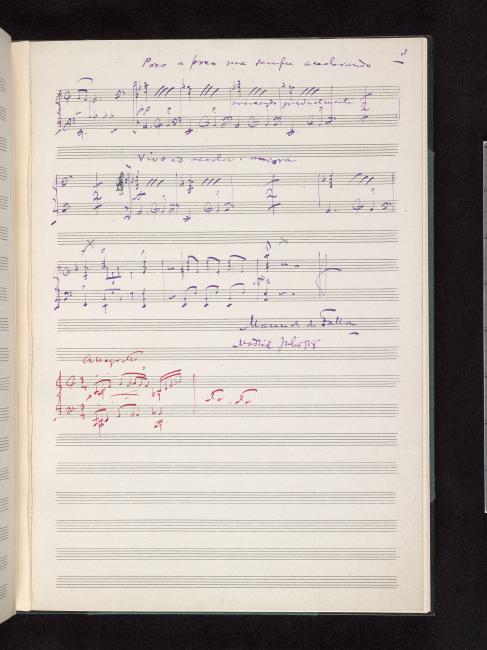 3
Poco a poco ma sempre accelerando
crescendo gradualmente
Vivo ed accel. ancora
Manuel de Falla
Madrid
Allegretto